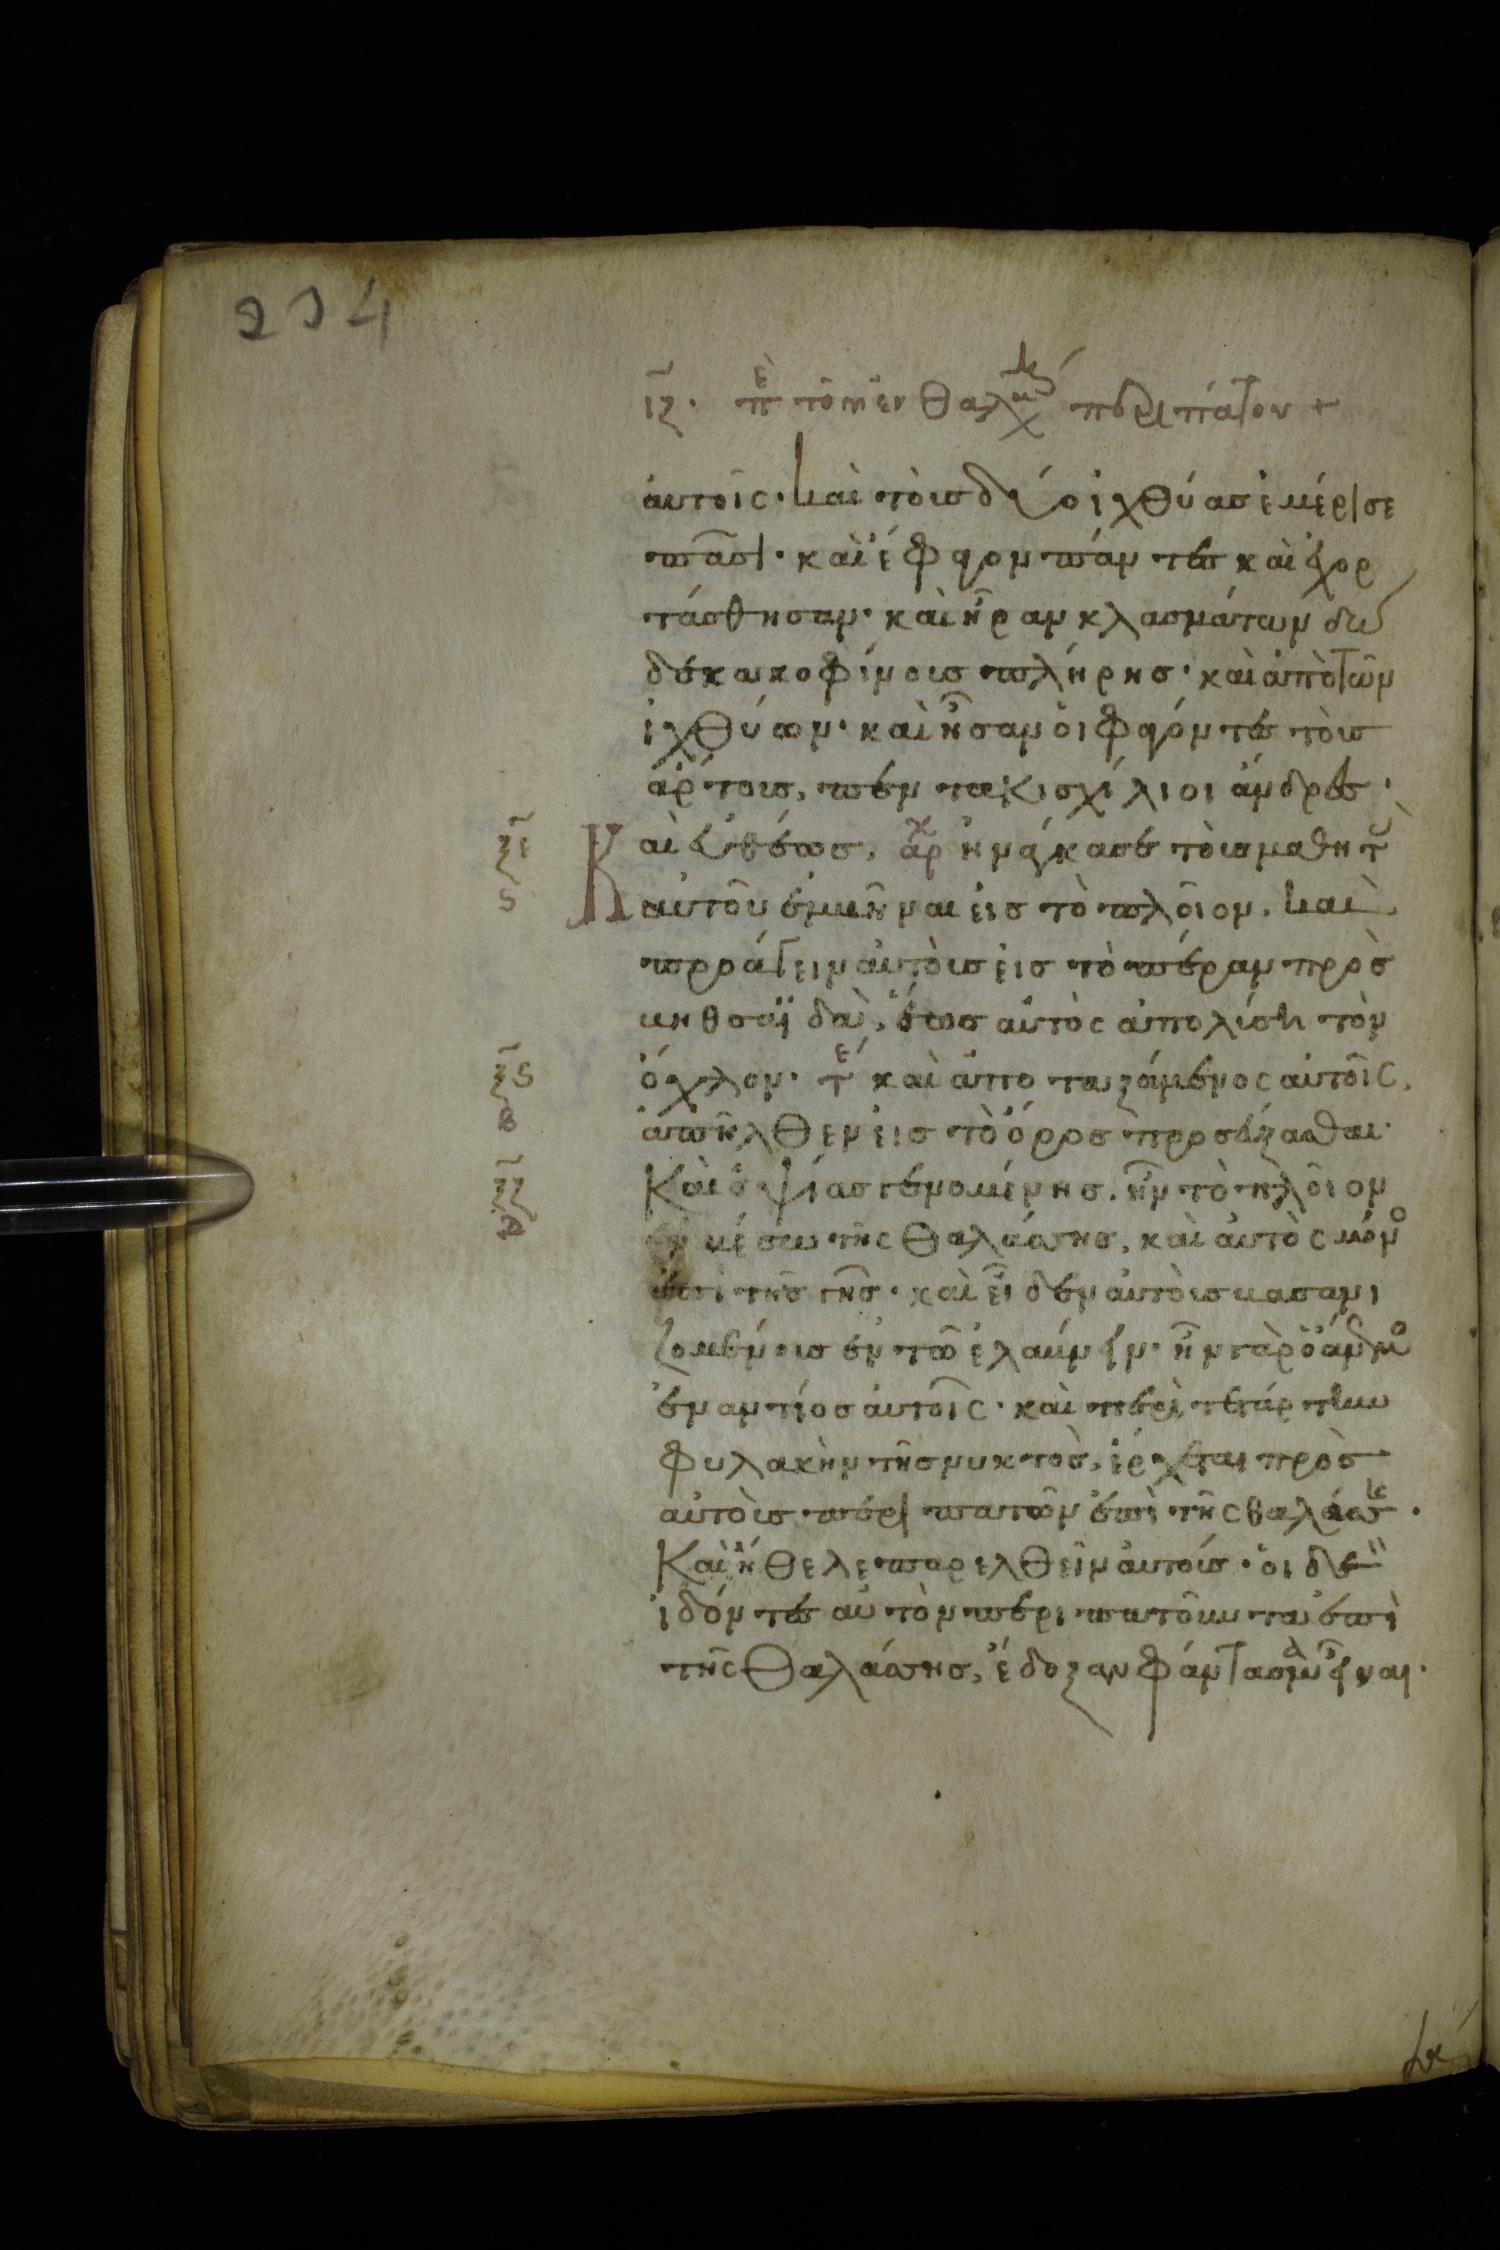 234
ιζ. πε τοῦ ἐν θαλ περιπάτου +
αυτοῖς· και τοὺς δύο ἰχθύας ἐμέρισε
πᾶσι· καὶ ἔφαγον πάντες καὶ ἐχορ
τάσθησαν· καὶ ἦραν κλασμάτων δώ
δεκα κοφίνους πλήρης· καὶ ἀπὸ τῶν
ἰχθύων· καὶ ἦσαν ὁι φαγόντες τοὺς
ἄρτους, πέντακισχίλιοι ἄνδρες·
ξε Και ἐυθέως, ἀρχ ἠνάγκασε τοὺς μαθητ
ς αὐτοῦ ἐμβῆναι εἰς τὸ πλοῖον. και
προάγειν αὐτοὺς εἰς τὸ πέραν πρὸς
βηθσαϊδὰ, ἕως αὐτὸς ἀπολύση τὸν
ξς ὄχλον· τε καὶ ἀποταξάμενος αὐτοῖς,
β ἀπῆλθεν εἰς τὸ ὄρος προσεύξασθαι·
ξζ Καὶ ὀψίας γενομένης. ἦν τὸ πλοῖον
δ ἐν μέσω τῆς θαλάσσης, καὶ αὐτὸς μόνο
ἐπὶ τῆς γῆς· καὶ εἶδεν αὐτοὺς βασανι
ζομένους ἐν τῶ ἐλαύνειν· ἦν γὰρ ὁ ἄνεμο
ἐναντίος αὐτοῖς· καὶ περὶ τετάρτην
φυλακὴν τῆς νυκτὸς, ἔρχεται πρὸς
αὐτοὺς περιπατῶν ἐπὶ τῆς θαλάσσης·
Καὶ ἤθελε παρελθεῖν αὐτούς· ὁι δὲ
ἰδόντες αὐτὸν περιπατοῦντα ἐπὶ
τῆς θαλάσσης, ἔδοξαν φάντασμα εἶναι·